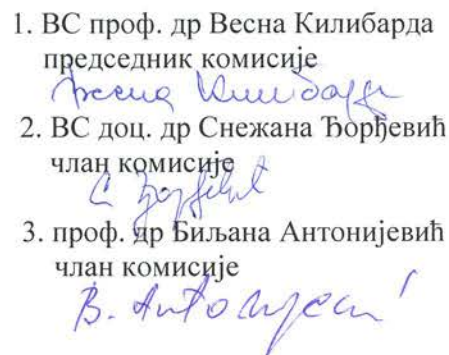 1. ВС проф. др Весна Килибарда
председник комисије
Весна Килибарда
2. ВС доц. др Снежана Ђорђевић
члан комисије
С. Ђорђевић
3. проф. др Биљана Антонијевић
члан комисије
B. Antonijević